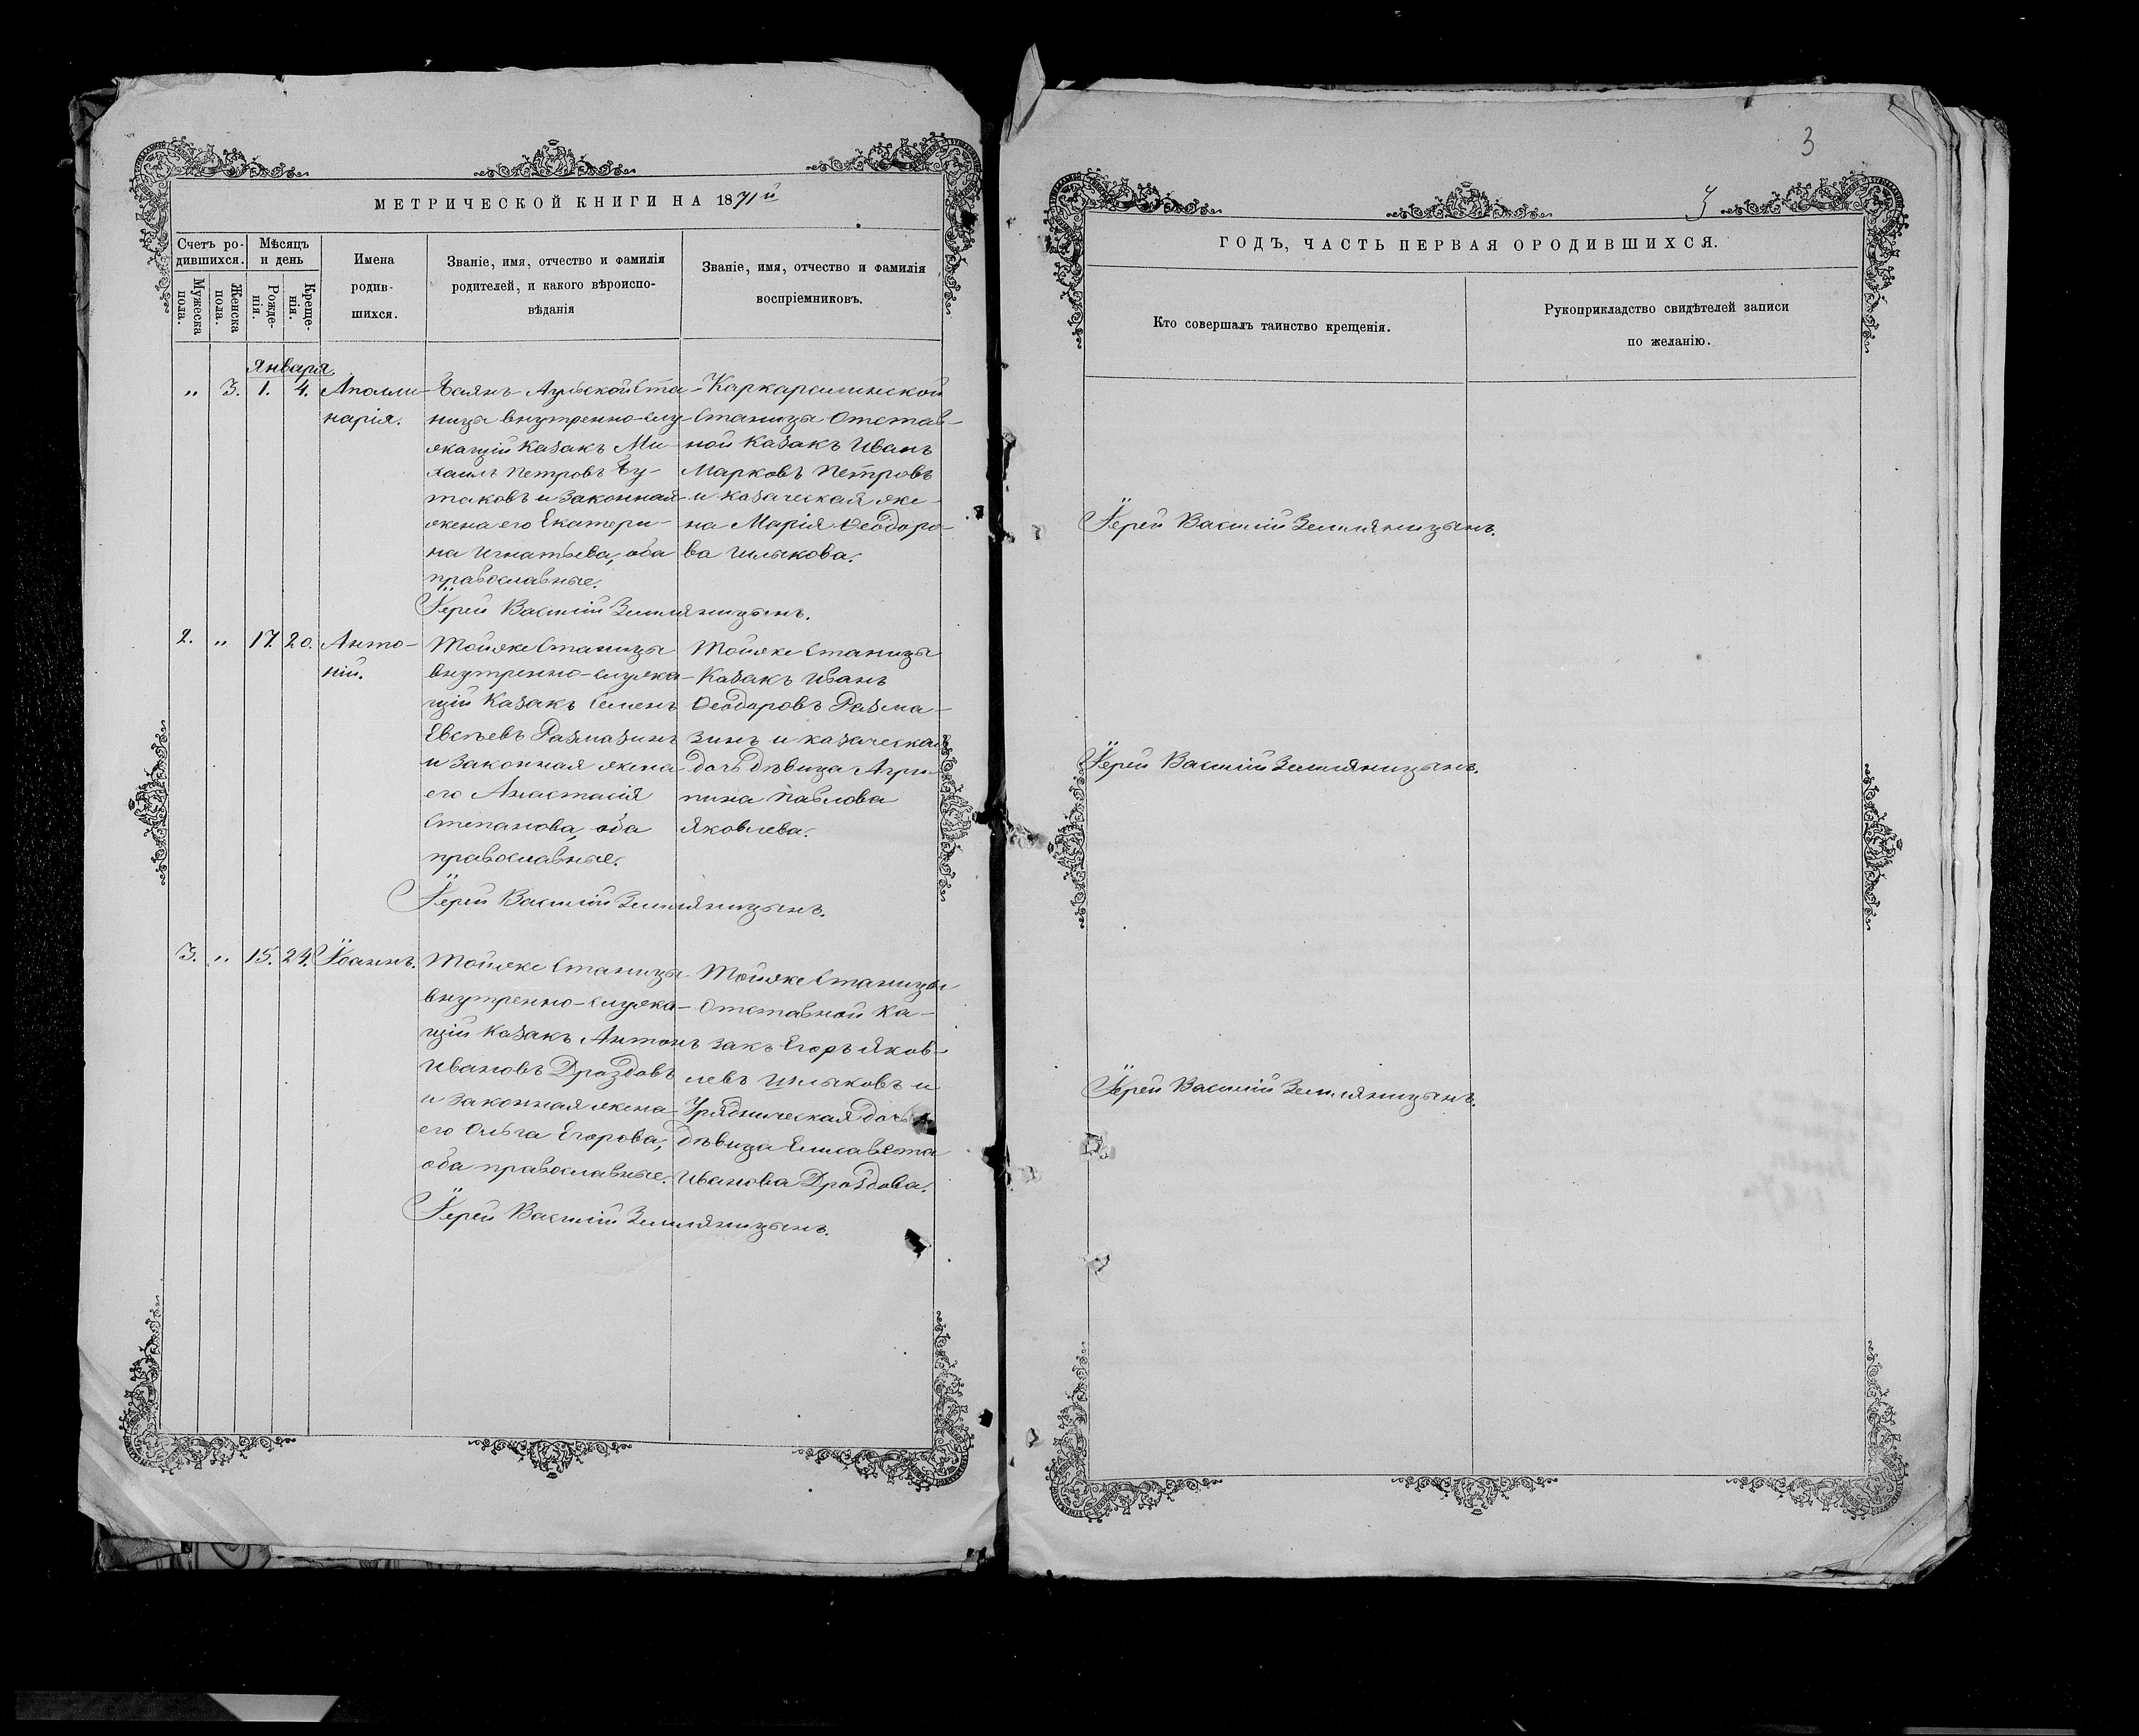 МЕТРИЧЕСКОЙ КНИГИ НА 1871й
Счетъ ро-
дившихся.
Мѣсяцъ
и день
Мужеска
пола.
Женска
пола.
Рожде-
нія.
Креще-
нія.
Имена
родив-
шихся.
Званіе, имя, отчество и фамилія
родителей, и какого вѣроиспо-
вѣданія
Званіе, имя, отчество и фамилія
воспріемниковъ.
Января
„ 3. 1. 4.
Аполли-
нарія.
Баянъ Аульской Ста-
ницы внутренно-слу-
жащій Казакъ Ми-
хаилъ Петровъ Бу-
таковъ и законная
жена его Екатери-
на Игнатьева, оба
православные.
Каркаралинской
Станицы Отстав-
ной Казакъ Иванъ
Марковъ Петровъ
и казаческая же-
на Марія Ѳеодоро-
ва Шлыкова.
Іерей Василій Земляницынъ.
2. „ 17. 20.
Анто-
ній.
Тойже Станицы
внутренно-служа-
щій Казакъ Семенъ
Евсѣевъ Размазинъ
и законная жена
его Анастасія
Степанова, оба
православные.
Тойже Станицы
Казакъ Иванъ
Ѳеодоровъ Размa-
зинъ и казаческая
дочь дѣвица Агри-
пина Павлова
Яковлева.
Іерей Василій Земляницынъ.
3. „ 15. 24.
Іоаннъ.
Тойже Станицы
внутренно-служа-
щій Казакъ Антонъ
Ивановъ Дроздовъ
и законная жена
его Ольга Егорова,
оба православные.
Тойже Станицы
Отставной Ка-
закъ Егоръ Яков-
левъ Шлыковъ и
Урядническая дочь
дѣвица Елисавета
Иванова Дроздова.
Іерей Василій Земляницынъ.
3
3
ГОДЪ, ЧАСТЬ ПЕРВАЯ ОРОДИВШИХСЯ.
Кто совершалъ таинство крещенія.
Рукоприкладство свидѣтелей записи
по желанію.
Іерей Василій Земляницынъ.
Іерей Василій Земляницынъ.
Іерей Василій Земляницынъ.